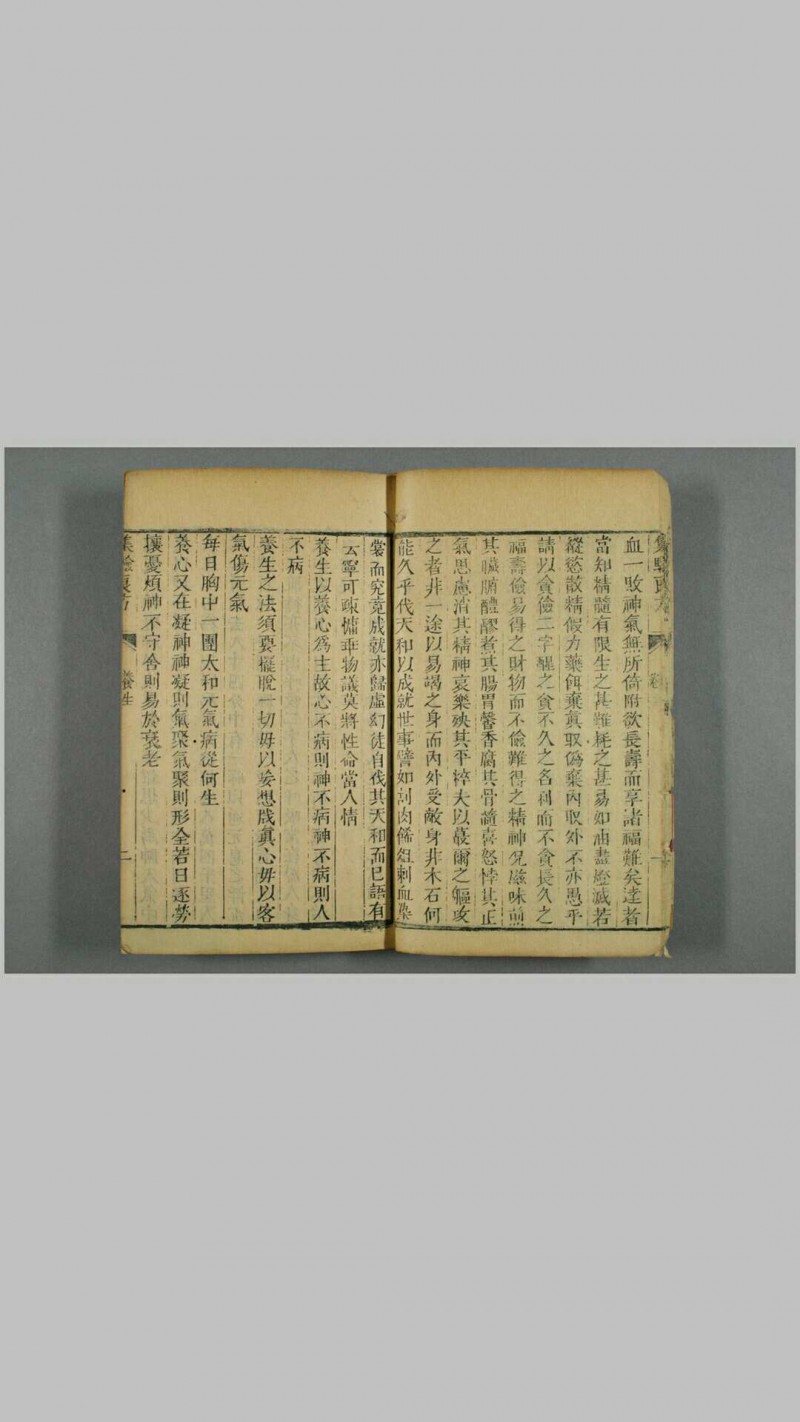 血一敗神氣無所倚附欲長壽而享諸福難矣達者
當知精髓有限生之甚難耗之甚易如油盡燈滅若
縱慾散精假力藥餌棄真取偽棄內取外不亦愚乎
請以貪儉二字醒之貪不久之名利而不貪長久之
福壽儉易得之財物而不儉難得之精神況滋味煎
其臟腑醴醪煮其腸胃馨香腐其骨髓喜怒悖其正
氣思慮消其精神哀樂殃其平粹夫以蕞爾之軀攻
之者非一途以易竭之身而內外受敵身非木石何
能久乎伐天和以成就世事譬如刲肉俻俎刺血染
裳而究竟成就亦歸虛幻徒自伐其天和而已語有
云寧可疎慵乖物議莫將性命當人情
養生以養心為主故心不病則神不病神不病則人
不病
養生之法須要擺脫一切毋以妄想戕真心毋以客
氣傷元氣
每日胸中一團太和元氣病從何生
養心又在凝神神凝則氣聚氣聚則形全若日逐勞
攘憂煩神不守舍則易於衰老
集驗良方
養生
二